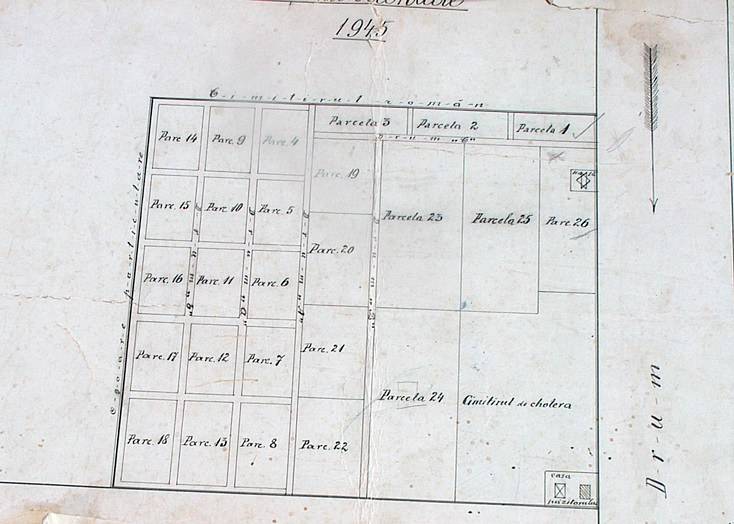 1945
Cimitirul român
Parcela 3
Parcela 2
Parcela 1
Parc. 14
Parc. 9
Parc. 4
Parc. 19
Parcela 23
Parcela 25
Parc. 26
Parc. 15
Parc. 10
Parc. 5
Parc. 20
Parc. 16
Parc. 11
Parc. 6
Parc. 17
Parc. 12
Parc. 7
Parc. 21
Parcela 24
Cimitirul de cholera
Parc. 18
Parc. 13
Parc. 8
Parc. 22
casa
păzitorului
D-r-u-m